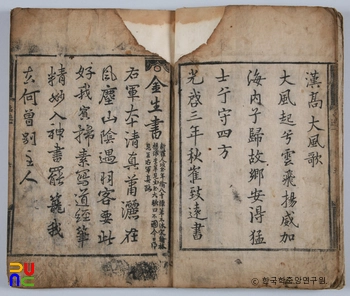 漢高大風歌
大風起兮雲飛揚威加
海內兮歸故鄉安得猛
士兮守四方
光啓三年秋崔致遠書
金生書
右軍本清真蕭灑在
風塵山陰遇羽客要此
好鵝賓掃素寫道經筆
精妙入神書罷籠鵝
去何曾別主人
ⓒ 한국학중앙연구원